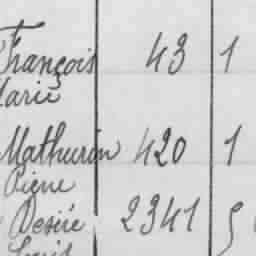 François 43 1
Marie
Mathurin 420 1
Pierre
Desiré 2341 5
Louis